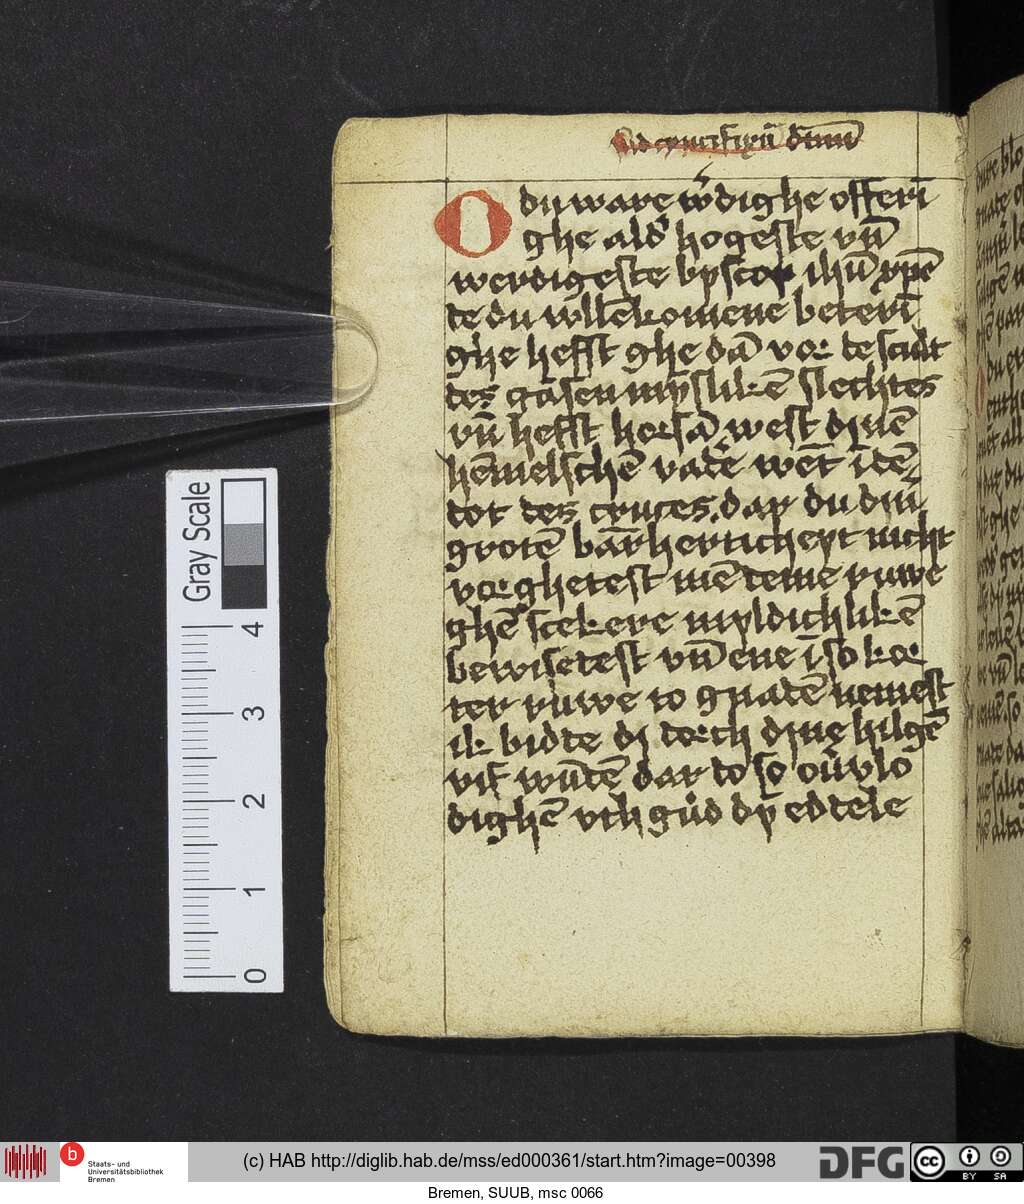 Ad crucifixū dñm
O du ware w̾dighe offerī
ghe ald̾ hogeste vn̄
werdigeste byscop ihū xp̄e
te du wllēkomene beterī
ghe hefft ghe dā vor de sculd
des gāsen mȳslikē slechtes
vn̄ hefft horsā west dinē
hēmelschē vadē wēt ī dē
dot des cruces. dar du dīn
grotē bārherticheyt nicht
vorghetest mē deme ruwe
ghē scekere myldichlikē
bewisetest vn̄ ene ī so kor
ter ruwe to gnadē nemest
ik bidde di dorch dine hilgē
vif wūdē dar do so ou̾vlo
dighē vth gud dȳ eddele
Gray Scale
4
3
2
1
0
b
Staats- und
Universitätsbibliothek
Bremen
(c) HAB http://diglib.hab.de/mss/ed000361/start.htm?image=00398
DFG
cc
BY SA
Bremen, SUUB, msc 0066